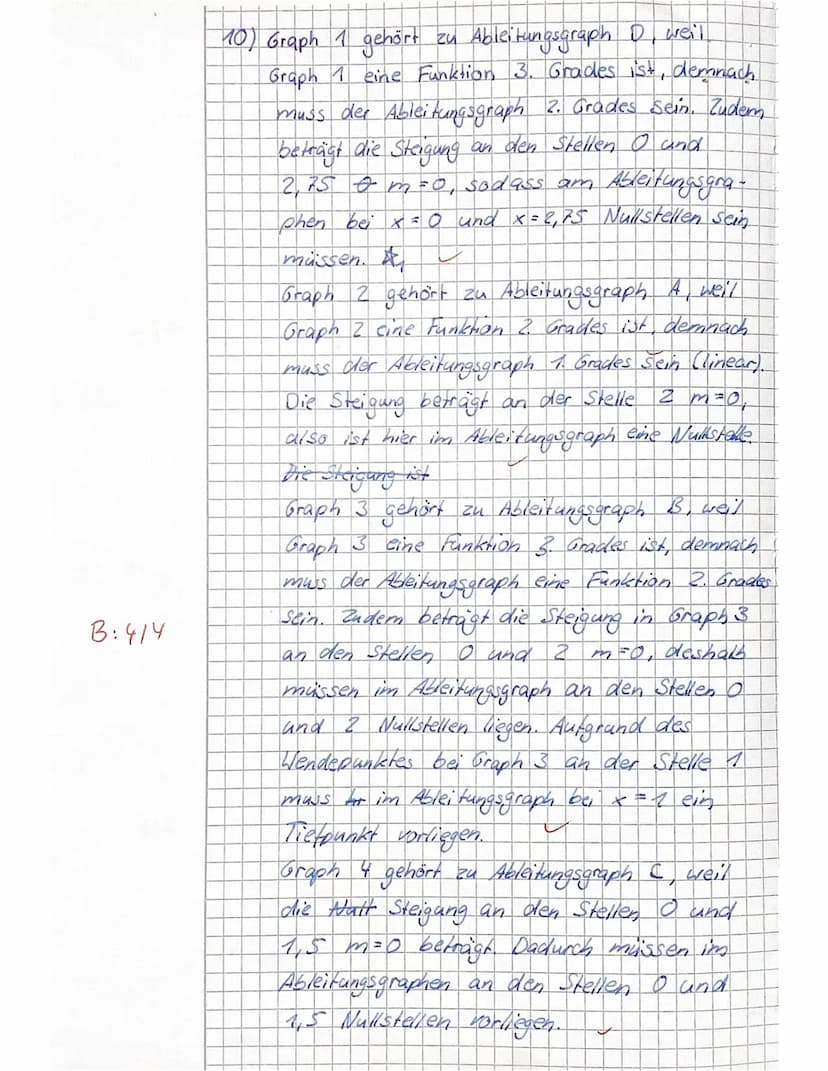 10) Graph 1 gehört zu Ableitungsgraph D, weil
Graph 1 eine Funktion 3. Grades ist, demnach
muss der Ableitungsgraph 2. Grades sein. Zudem
beträgt die Steigung an den Stellen 0 und
2,75 m=0, sodass am Ableitungsgra-
phen bei x=0 und x=2,75 Nullstellen sein
müssen.
Graph 2 gehört zu Ableitungsgraph A, weil
Graph 2 eine Funktion 2. Grades ist, demnach
muss der Ableitungsgraph 1. Grades sein (linear).
Die Steigung beträgt an der Stelle 2 m=0,
also ist hier im Ableitungsgraph eine Nullstelle.
Die Steigung ist
Graph 3 gehört zu Ableitungsgraph B, weil
Graph 3 eine Funktion 3. Grades ist, demnach
muss der Ableitungsgraph eine Funktion 2. Grades
sein. Zudem beträgt die Steigung in Graph 3
B: 4/4
an den Stellen 0 und 2 m=0, deshalb
müssen im Ableitungsgraph an den Stellen 0
und 2 Nullstellen liegen. Aufgrund des
Wendepunktes bei Graph 3 an der Stelle 1
muss im Ableitungsgraph bei x=1 ein
Tiefpunkt vorliegen.
Graph 4 gehört zu Ableitungsgraph C, weil
die Steigung an den Stellen 0 und
1,5 m=0 beträgt. Dadurch müssen im
Ableitungsgraphen an den Stellen 0 und
1,5 Nullstellen vorliegen.